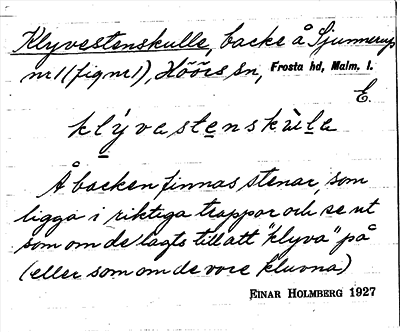 Klyvestenskulle, backe å Sjunnerup
nr 1 (fig nr 1), Höörs sn, Frosta hd, Malm. l.
E.
klývastenskùla
Å backen finnas stenar, som
ligga i riktiga trappor och se ut
som om de lagts till att "klyva" på
(eller som om de vore kluvna)
EINAR HOLMBERG 1927